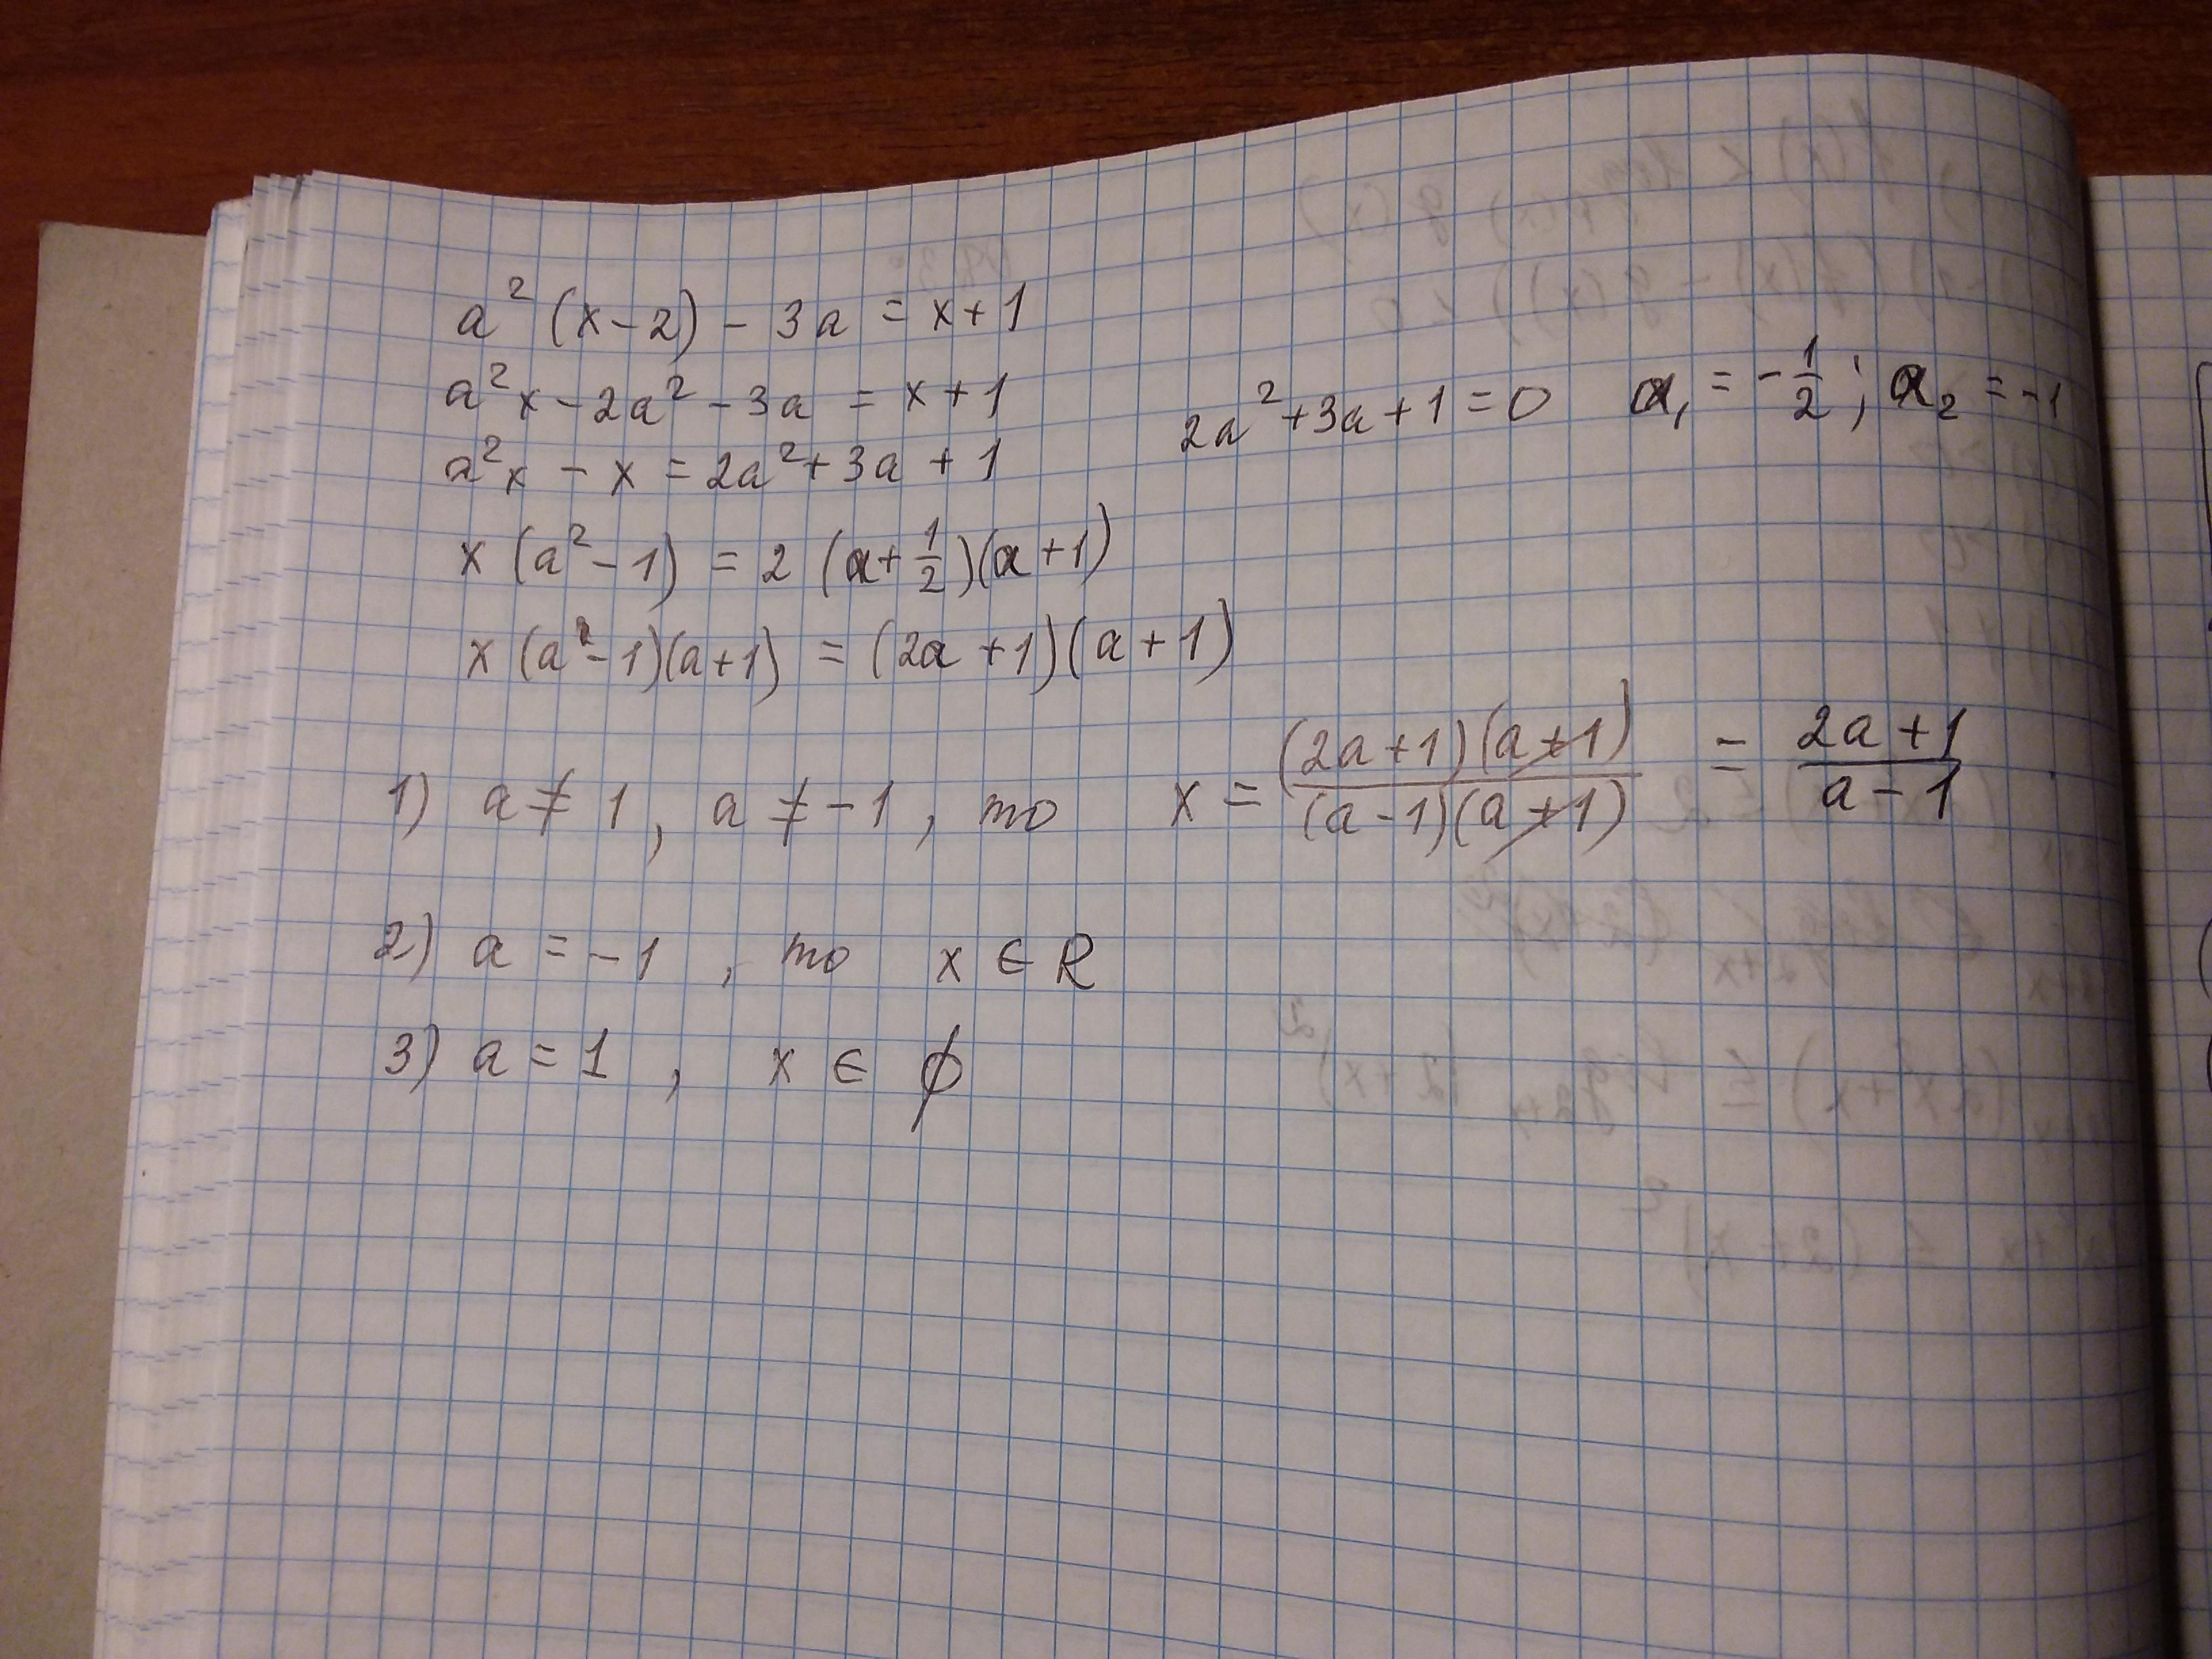 a² (x-2) - 3a = x+1
a²x - 2a² - 3a = x+1
2a²+3a+1=0   a₁ = -1/2 ; a₂ = -1
a²x - x = 2a²+3a+1
x (a²-1) = 2 (a+1/2)(a+1)
x (a-1)(a+1) = (2a+1)(a+1)
1) a≠1, a≠-1, то x = (2a+1)(a+1)/(a-1)(a+1) = 2a+1/a-1
2) a = -1, то x ∈ R
3) a = 1, x ∈ ∅